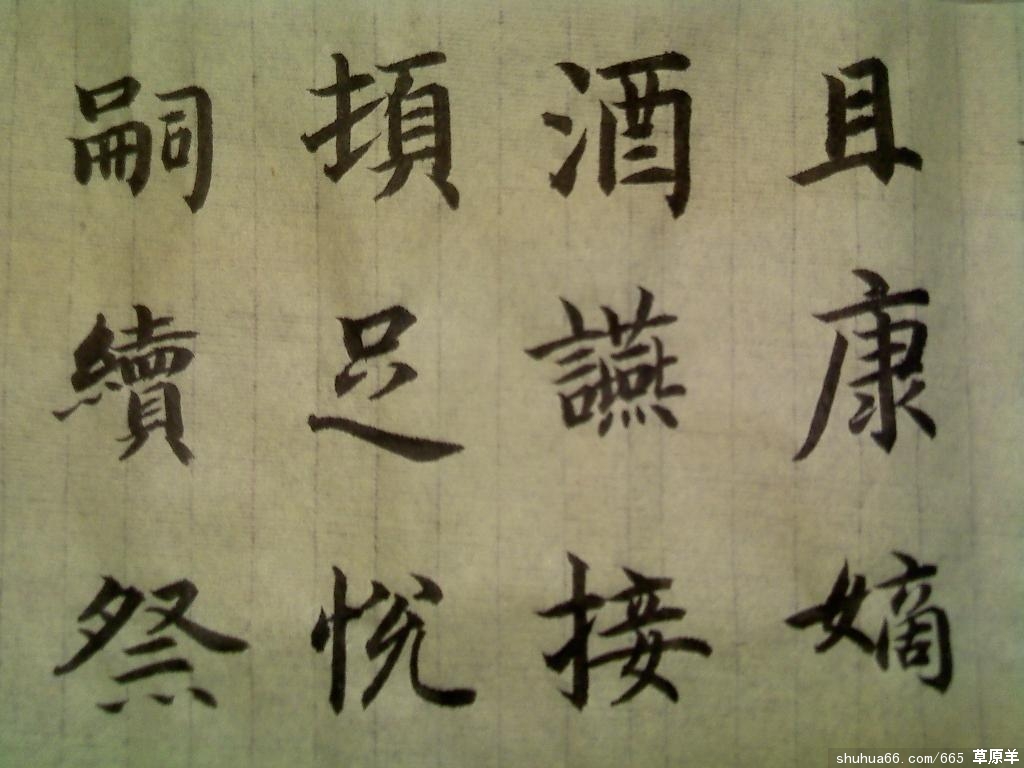 且康嫡
酒讌接
頓足悦
嗣續祭
shuhua66.com/665 草原羊